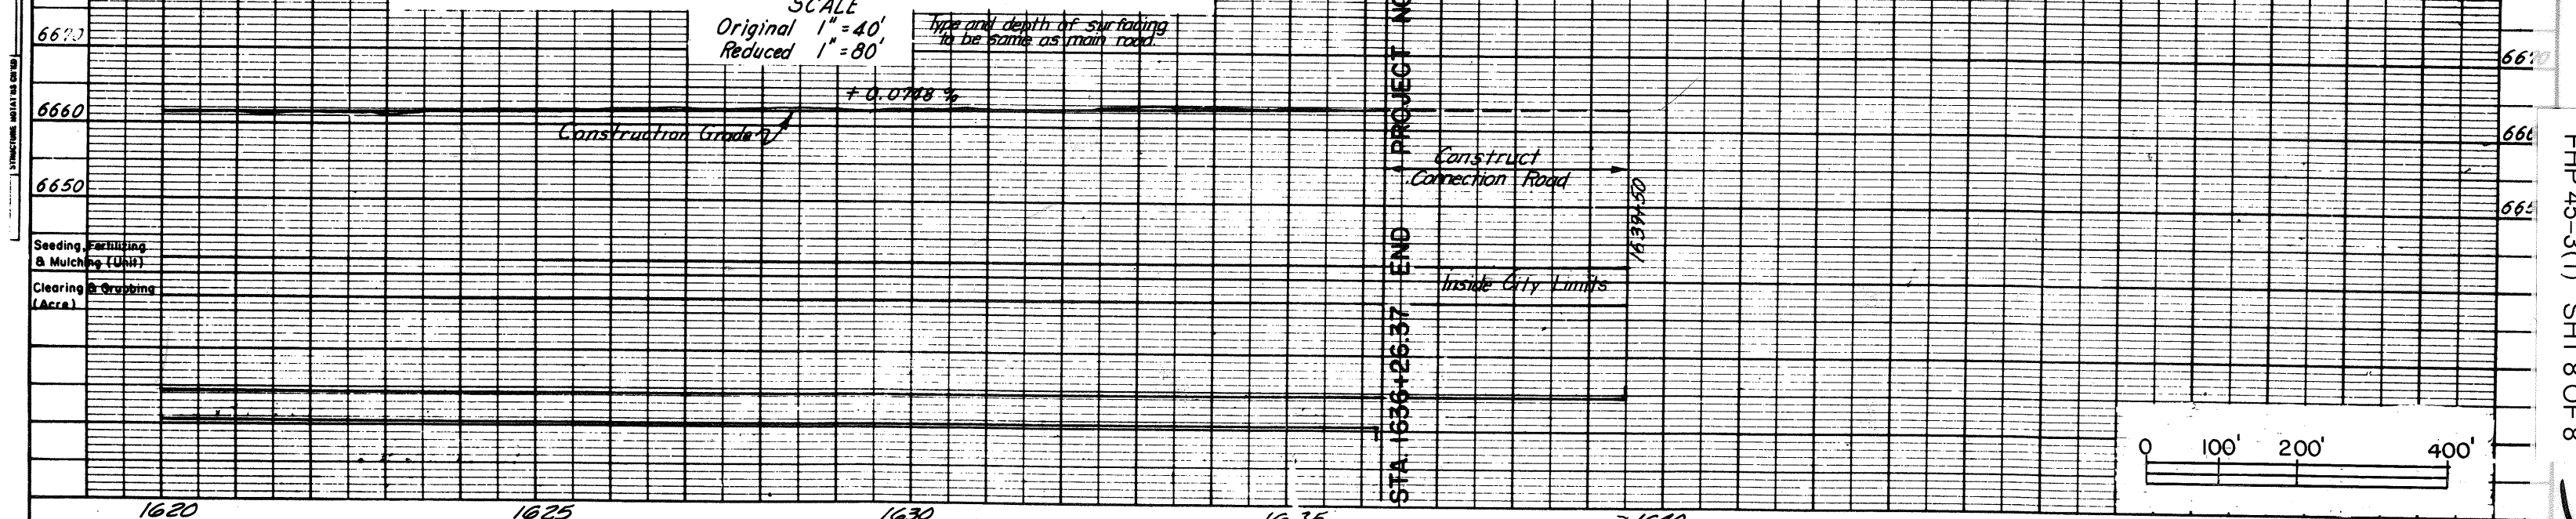 SCALE
Original 1" = 40'
Reduced 1" = 80'
Type and depth of surfacing
to be same as main road.
6670
6660
6650
+ 0.0748 %
Construction Grade
STA. 1636+26.37 END PROJECT NO
Construct
Connection Road
1639+50
Inside City Limits
Seeding, Fertilizing
& Mulching (Unit)
Clearing & Grubbing
(Acre)
1620
1625
1630
1635
1640
6670
666
665
0 100' 200' 400'
SHT 8 OF 8